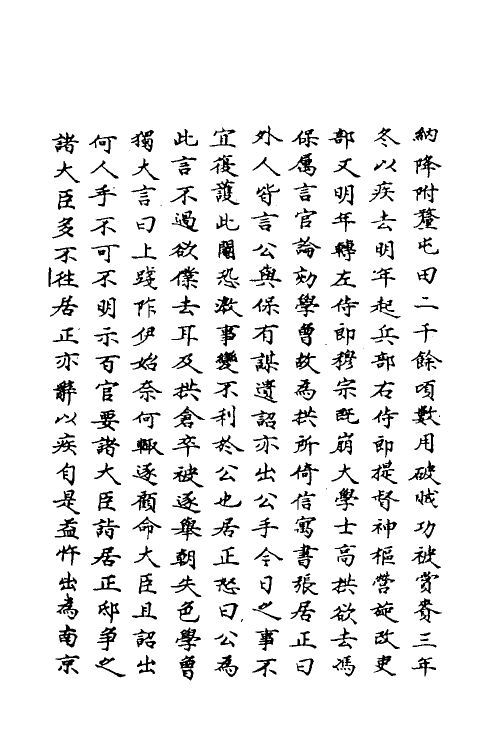 納降附釐屯田二千餘頃數用破賊功被賞賚三年
冬以疾去明年起兵部右侍郎提督神樞營旋改吏
部又明年轉左侍郎穆宗旣崩大學士高拱欲去馮
保屬言官論劾學曾故為拱所倚信寓書張居正曰
外人皆言公與保有謀遺詔亦出公手今日之事不
宜復護此閹恐激事變不利於公也居正怒曰公為
此言不過欲僕去耳及拱倉卒被逐舉朝失色學曾
獨大言曰上踐阼伊始奈何輒逐顧命大臣且詔出
何人手不可不明示百官要諸大臣詣居正邸爭之
諸大臣多不往居正亦辭以疾自是益忤出為南京